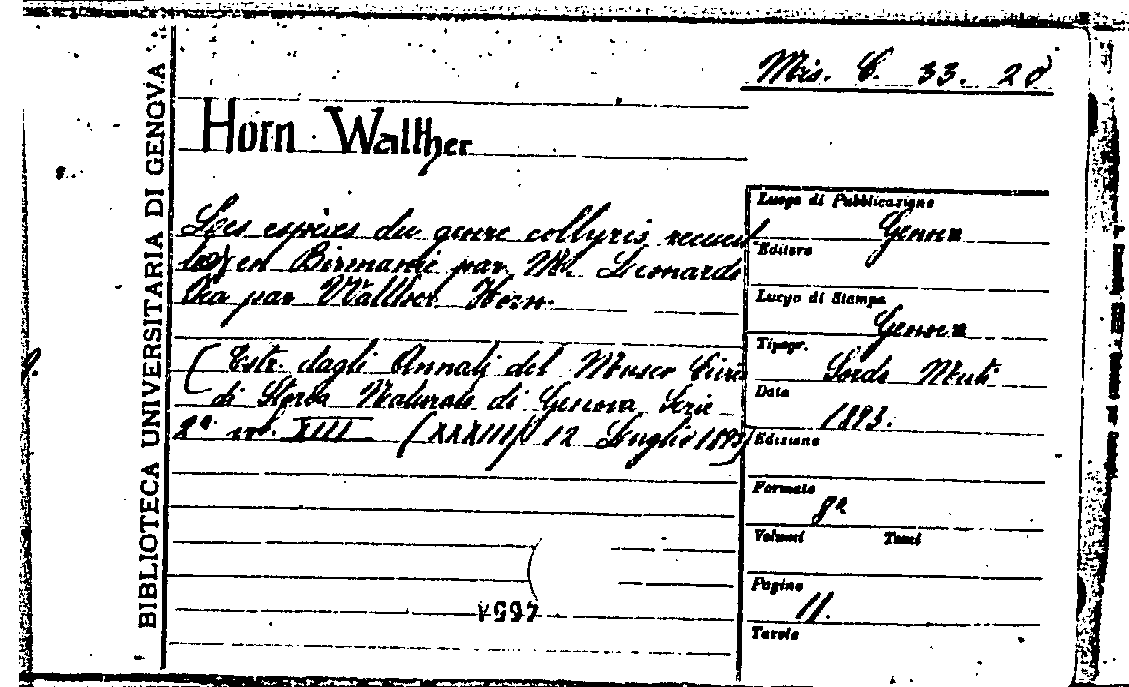 BIBLIOTECA UNIVERSITARIA DI GENOVA
Mis. C. 33. 20
Horn Walther
Les espèces du genre collyris recueil
les) en Birmanie par Mr. Leonardo
Fea par Walther Horn.
(Estr. dagli Annali del Museo Civico
di Storia Naturale di Genova Serie
2ª vol. XIII (XXXIII) 12 Luglio 1893)
Luogo di Pubblicazione
Genova
Editore
Luogo di Stampa
Genova
Tipogr.
Sordo Muti
Data
1893.
Edizione
Formato
8º
Volumi Tomi
Pagine
11.
Tavole